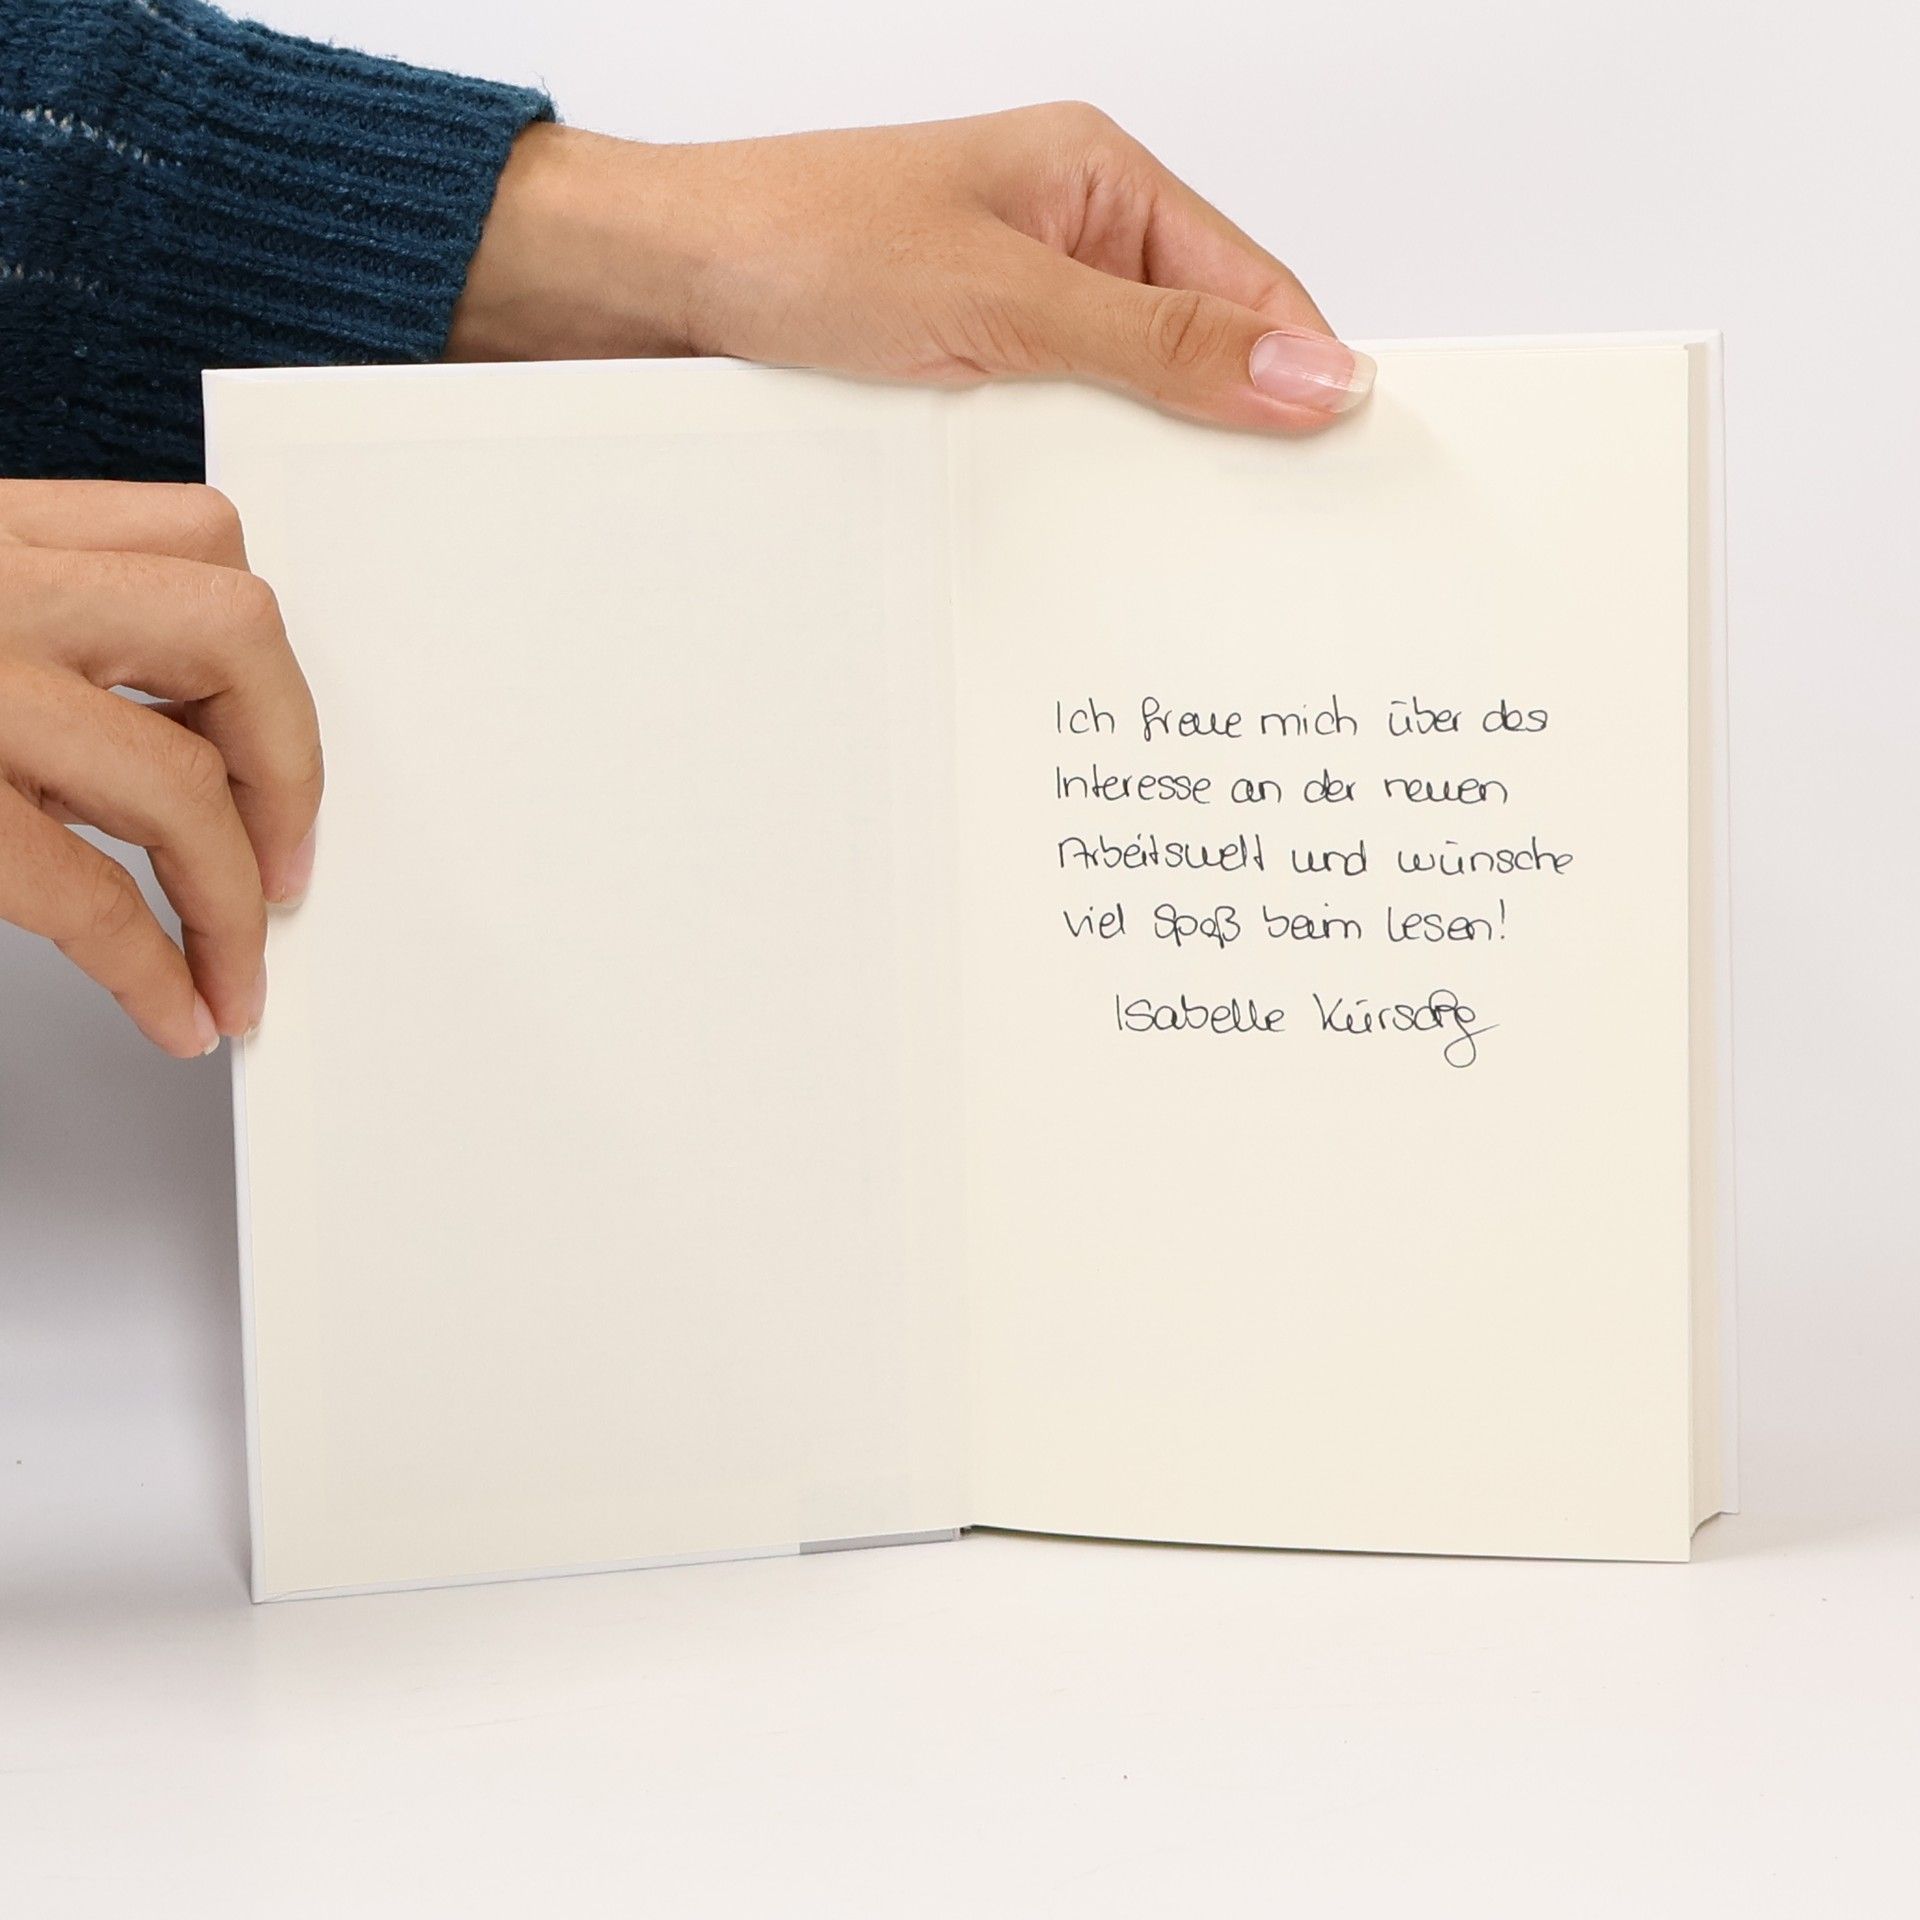 Ich freue mich über das
Interesse an der neuen
Arbeitswelt und wünsche
viel Spaß beim Lesen!
Isabelle Kürschner